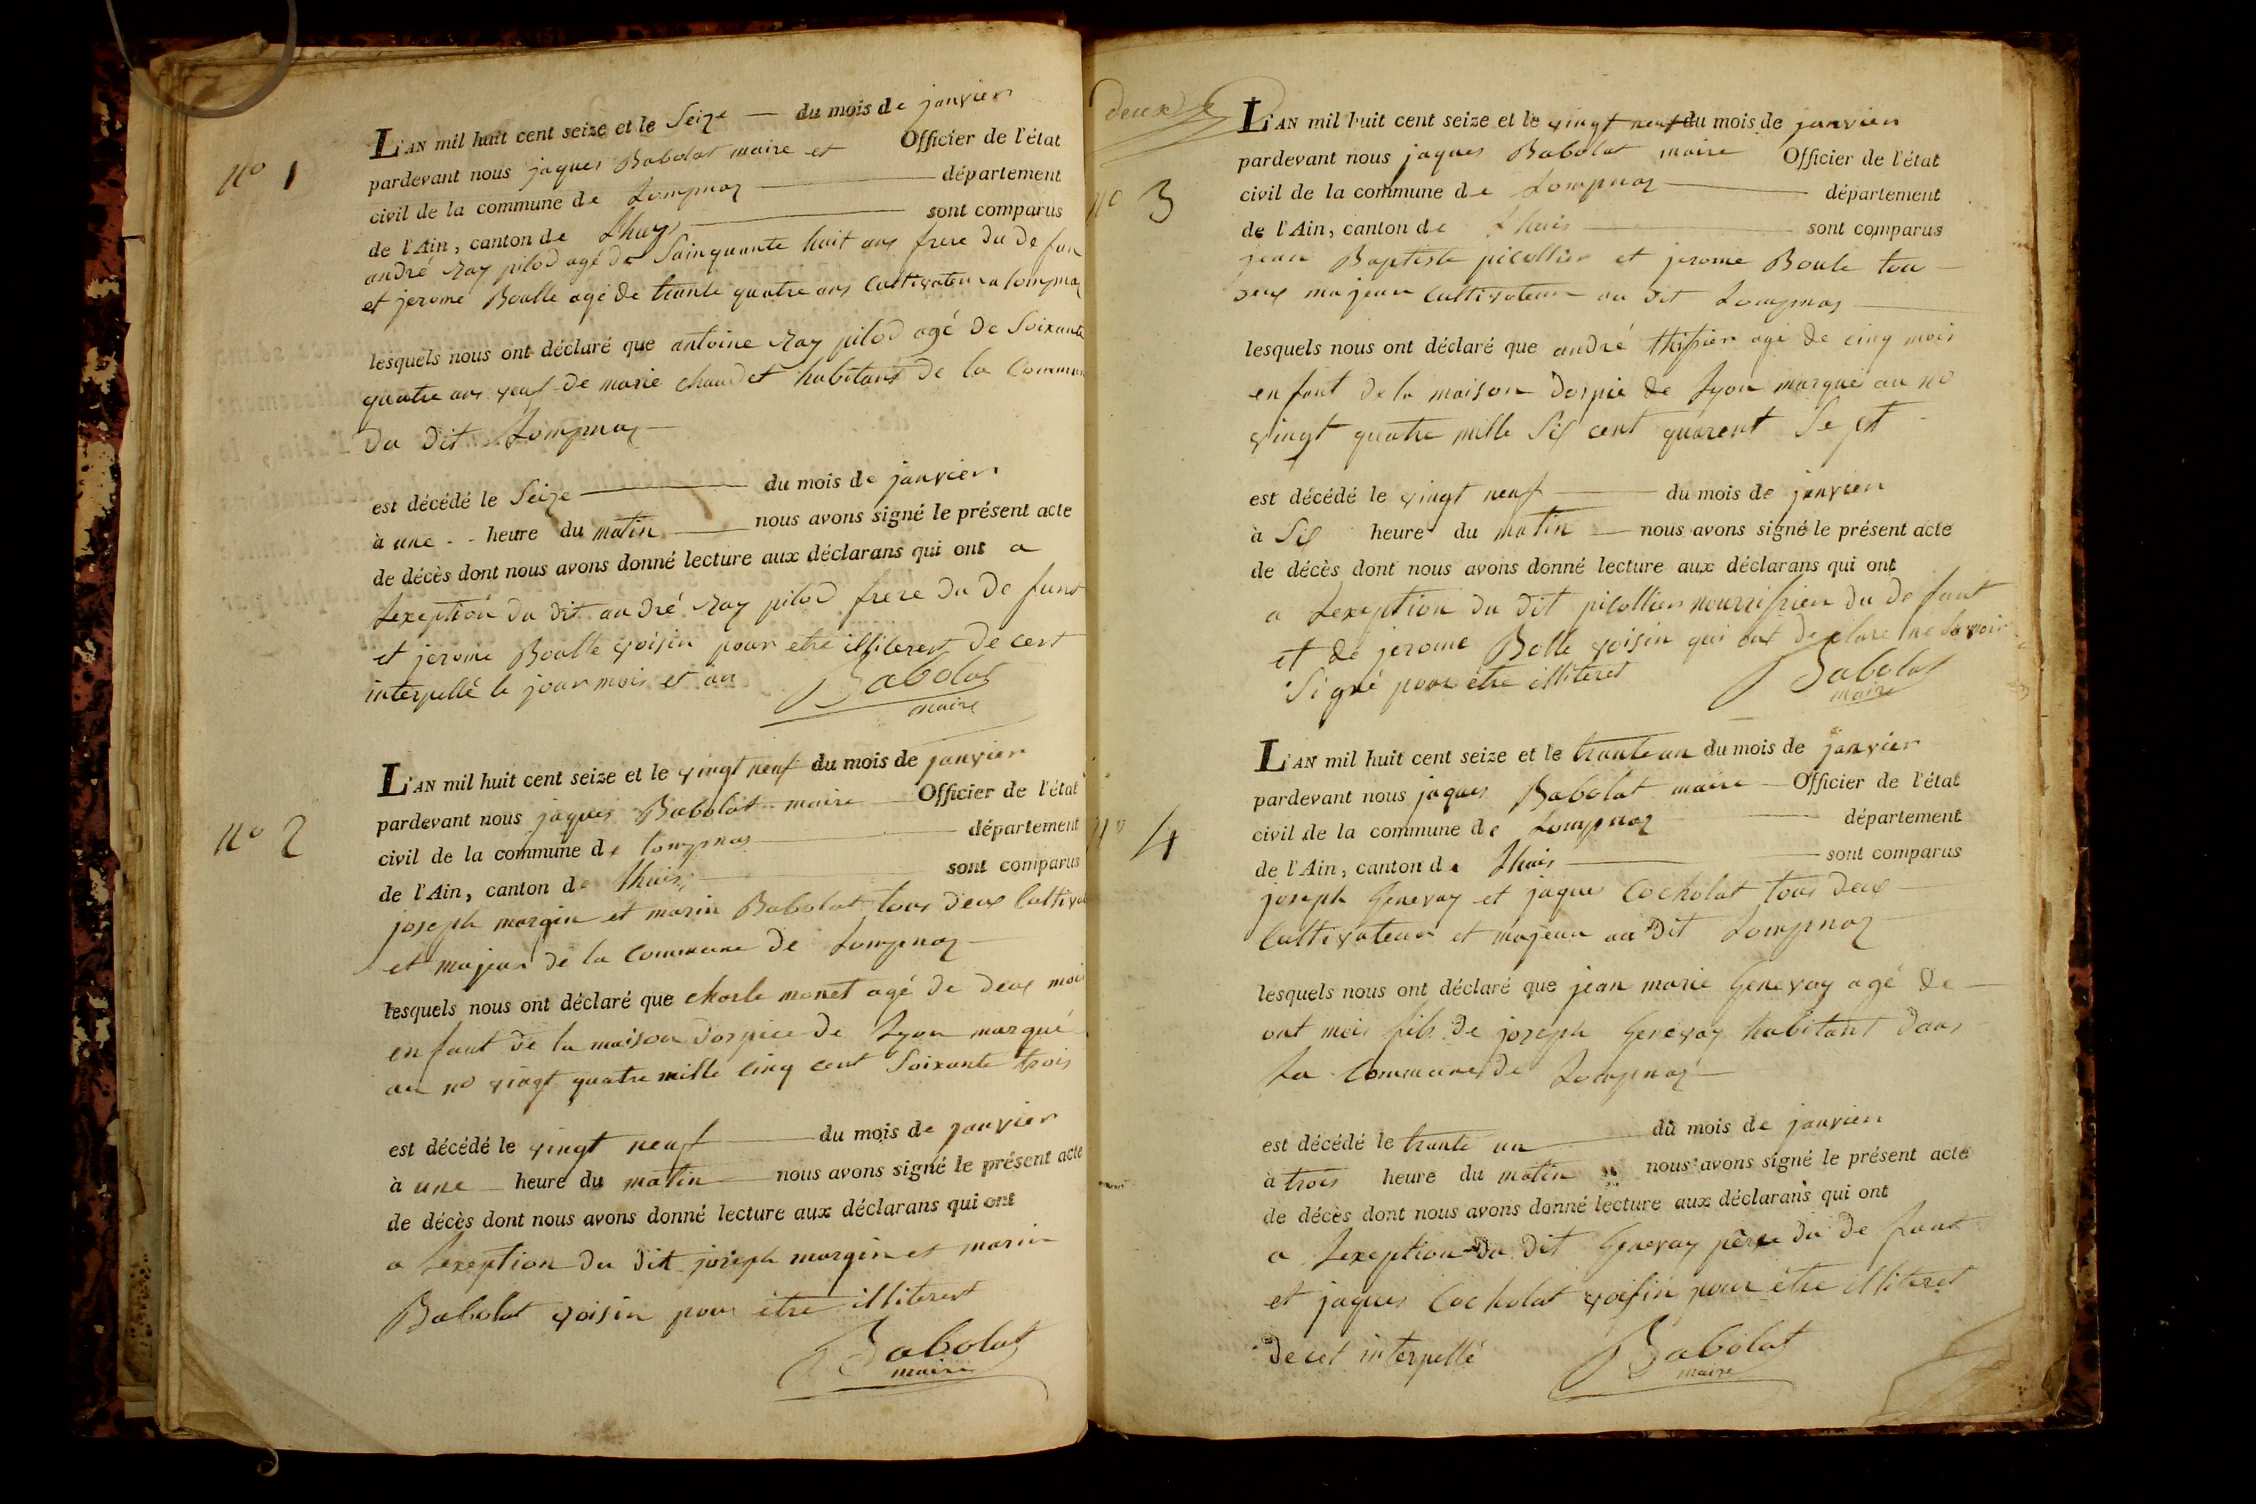 nº 1
L'AN mil huit cent seize et le Seize du mois de janvier
pardevant nous jaques Babolat maire et Officier de l'état
civil de la commune de Lompnaz département
de l'Ain, canton de Lhuys sont comparus
andré Ray pilod agé de Sainquante huit ans frere du defun
et jerome Boulle agé de trante quatre ans Cultivateur a lompnaz
lesquels nous ont déclaré que antoine Ray pilod agé de Soixante
quatre ans veuf de marie chaudet habitant de la Commun
du dit Lompnaz
est décédé le Seize du mois de janvier
à une heure du matin nous avons signé le présent acte
de décès dont nous avons donné lecture aux déclarans qui ont a
Lexeption du dit andré Ray pilod frere du defunt
et jerome Boulle voisin pour etre illiterest de cest
interpellé le jour mois et an Babolat
maire
nº 2
L'AN mil huit cent seize et le vingt neuf du mois de janvier
pardevant nous jaques Babolat maire Officier de l'état
civil de la commune de Lompnas département
de l'Ain, canton de Lhuis sont comparus
joseph margin et marin Babolat tous deux Cultiva
et majeur de la Commune de Lompnaz
lesquels nous ont déclaré que charle monet agé de deux mois
enfant de la maison dospice de Lyon marqué
au nº vingt quatre mille cinq cent Soixante trois
est décédé le vingt neuf du mois de janvier
à une heure du matin nous avons signé le présent acte
de décès dont nous avons donné lecture aux déclarans qui ont
a Lexeption du dit joseph margin et marin
Babolat voisin pour etre illiterest
Babolat
maire
deux
nº 3
L'AN mil huit cent seize et le vingt neuf du mois de janvier
pardevant nous jaques Babolat maire Officier de l'état
civil de la commune de Lompnaz département
de l'Ain, canton de Lhuis sont comparus
jean Baptiste picollier et jerome Boule tou
deux majeur Cultivateur au dit Lompnaz
lesquels nous ont déclaré que andré agé de cinq mois
enfant de la maison dospie de Lyon marqué au nº
vingt quatre mille Six cent quarent Sept
est décédé le vingt neuf du mois de janvier
à Six heure du matin nous avons signé le présent acte
de décès dont nous avons donné lecture aux déclarans qui ont
a Lexeption du dit picollier nourrissien du defunt
et de jerome Bolle voisin qui ont declare ne Savoir
Signé pour étre illiteret Babolat
maire
nº 4
L'AN mil huit cent seize et le trante un du mois de janvier
pardevant nous jaques Babolat maire Officier de l'état
civil de la commune de Lompnaz département
de l'Ain, canton de Lhuis sont comparus
joseph Genevay et jaque Cocholat tous deux
Cultivateur et majeur au dit Lompnaz
lesquels nous ont déclaré que jean marie Genevay agé de
ont mois fils de joseph Genevay habitant dans
La Commune de Lompnaz
est décédé le trante un du mois de janvier
à trois heure du matin nous avons signé le présent acte
de décès dont nous avons donné lecture aux déclarans qui ont
a Lexeption du dit Genevay père du defunt
et jaques Cocholat voisin pour étre illiteret
de cet interpellé Babolat
maire